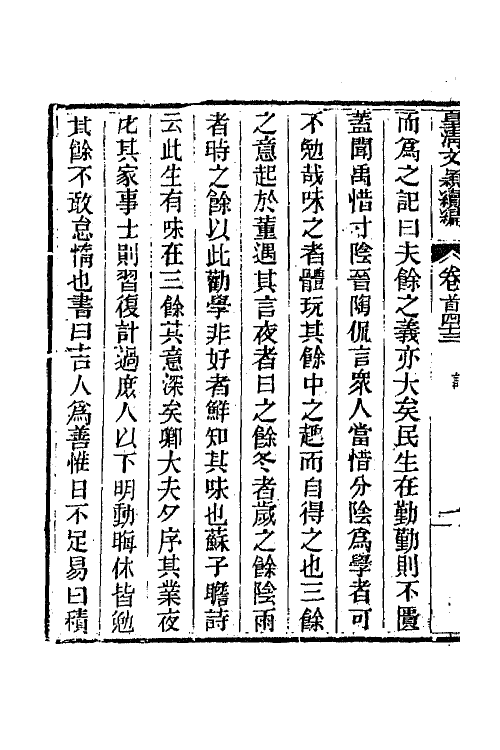 皇清文穎續編 卷首四十三 記
而為之記曰夫餘之義亦大矣民生在勤勤則不匱
蓋聞禹惜寸陰晉陶侃言衆人當惜分陰為學者可
不勉哉味之者體玩其餘中之趣而自得之也三餘
之意起於董遇其言夜者日之餘冬者歲之餘陰雨
者時之餘以此勸學非好者鮮知其味也蘇子瞻詩
云此生有味在三餘其意深矣卿大夫夕序其業夜
庀其家事士則習復計過庶人以下明動晦休皆勉
其餘不敢怠惰也書曰吉人為善惟日不足易曰積